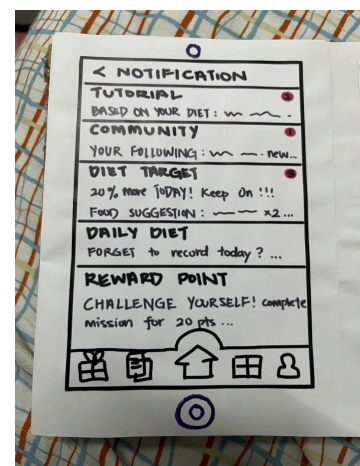 < NOTIFICATION
TUTORIAL
BASED ON YOUR DIET :
COMMUNITY 1
YOUR FOLLOWING : new...
DIET TARGET
20% more TODAY! Keep On !!!
FOOD SUGGESTION : x2 ...
DAILY DIET
FORGET to record today ? ...
REWARD POINT
CHALLENGE YOURSELF! complete
mission for 20 pts ...